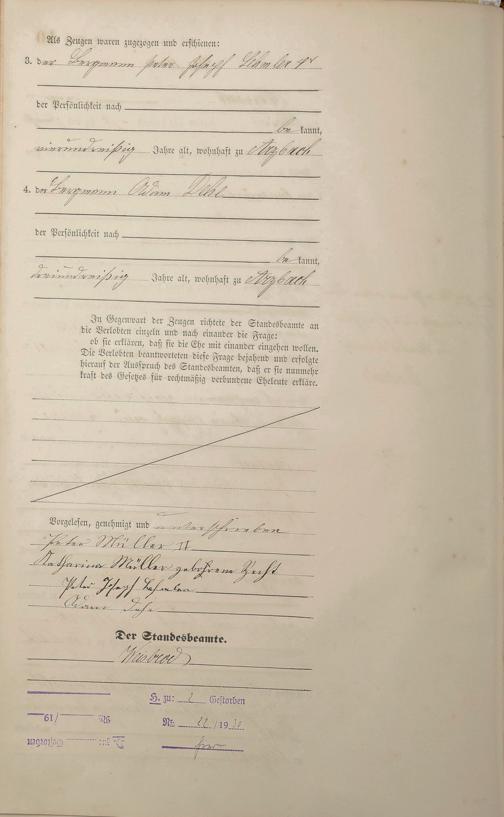 Als Zeugen waren zugezogen und erschienen:
3. der Bergmann Peter Joseph
der Persönlichkeit nach
be kannt,
vierunddreißig Jahre alt, wohnhaft zu Arzbach
4. der Bergmann Adam
der Persönlichkeit nach
be kannt,
dreiunddreißig Jahre alt, wohnhaft zu Arzbach
In Gegenwart der Zeugen richtete der Standesbeamte an
die Verlobten einzeln und nach einander die Frage:
ob sie erklären, daß sie die Ehe mit einander eingehen wollen.
Die Verlobten beantworteten diese Frage bejahend und erfolgte
hierauf der Ausspruch des Standesbeamten, daß er sie nunmehr
kraft des Gesetzes für rechtmäßig verbundene Eheleute erkläre.
Vorgelesen, genehmigt und unterschrieben
Peter Müller II
Katharina Müller geborene
Peter Joseph
Adam
Der Standesbeamte.
H. zu: 2 Gestorben
Nr. 22/19